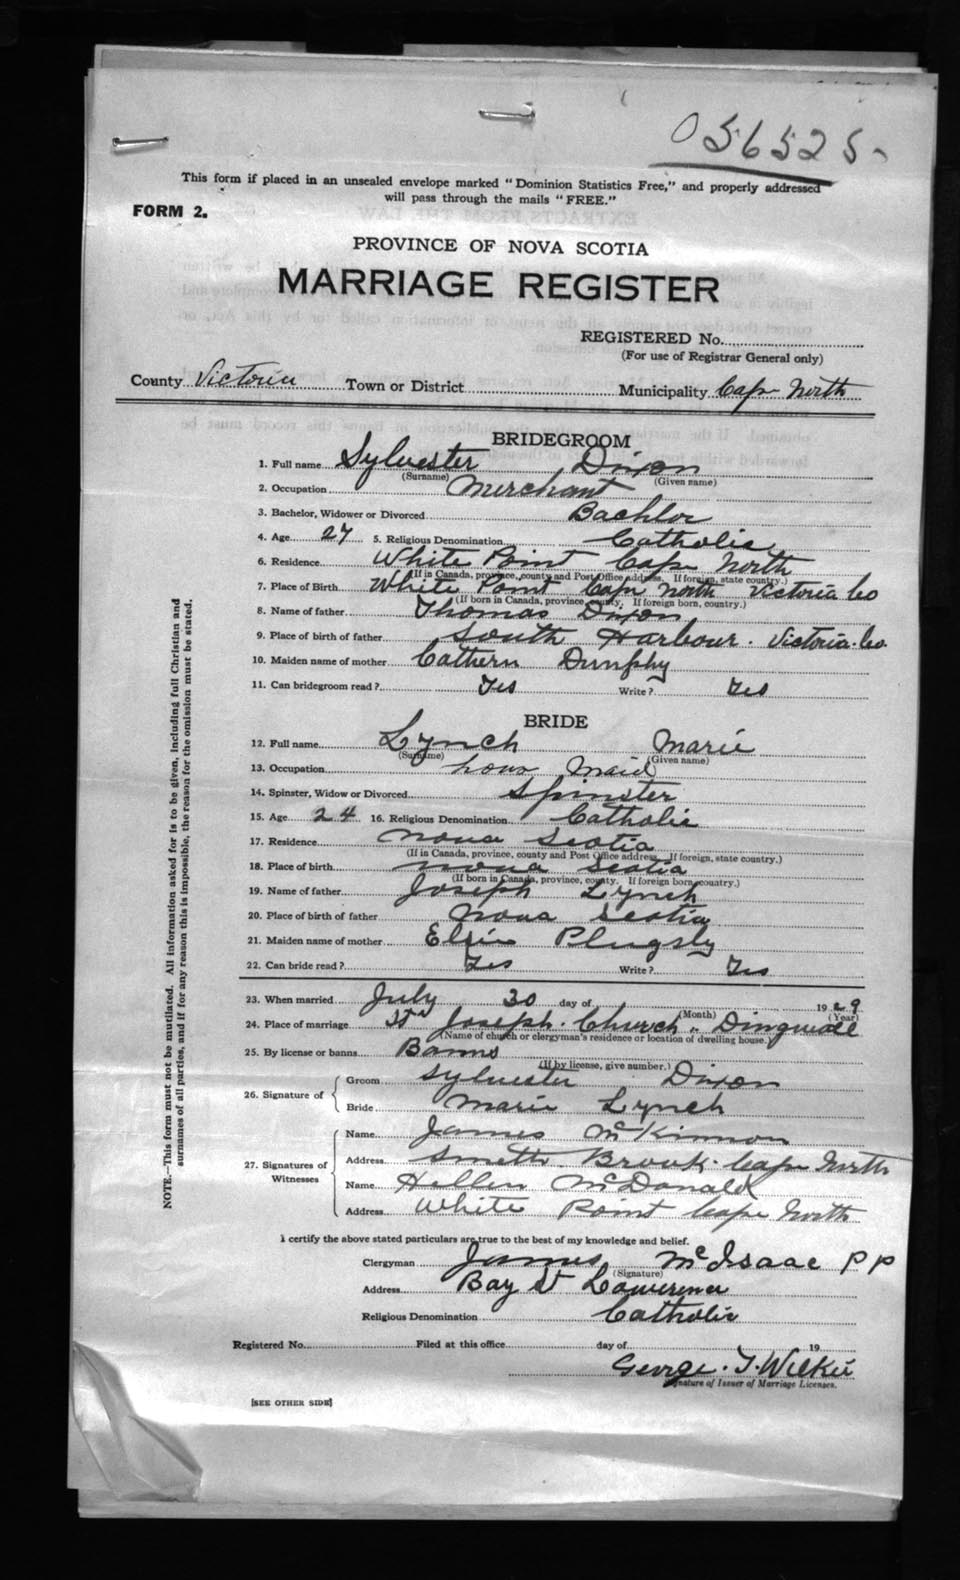 056525
This form if placed in an unsealed envelope marked "Dominion Statistics Free," and properly addressed
will pass through the mails "FREE."
FORM 2.
PROVINCE OF NOVA SCOTIA
MARRIAGE REGISTER
REGISTERED No.
(For use of Registrar General only)
County Victoria Town or District Municipality Cape North
BRIDEGROOM
1. Full name Sylvester Dixon
(Surname) (Given name)
2. Occupation Merchant
3. Bachelor, Widower or Divorced Bachlor
4. Age 27 5. Religious Denomination Catholic
6. Residence White Point Cape North
(If in Canada, province, county and Post Office address. If foreign, state country.)
7. Place of Birth White Point Cape North Victoria Co
(If born in Canada, province, county. If foreign born, country.)
8. Name of father Thomas Dixon
9. Place of birth of father South Harbour. Victoria. Co.
10. Maiden name of mother Cathern Dunphy
11. Can bridegroom read? Yes Write? Yes
BRIDE
12. Full name Lynch Marie
(Surname) (Given name)
13. Occupation Maid
14. Spinster, Widow or Divorced Spinster
15. Age 24 16. Religious Denomination Catholic
17. Residence Nova Scotia
(If in Canada, province, county and Post Office address. If foreign, state country.)
18. Place of birth Nova Scotia
(If born in Canada, province, county. If foreign born, country.)
19. Name of father Joseph Lynch
20. Place of birth of father Nova Scotia
21. Maiden name of mother Elsie
22. Can bride read? Yes Write? Yes
23. When married July 30 day of 1929
(Month) (Year)
24. Place of marriage St Joseph. Church. Dingwall
(Name of church or clergyman's residence or location of dwelling house.)
25. By license or banns Banns
(If by license, give number.)
26. Signature of
Groom Sylvester Dixon
Bride Marie Lynch
27. Signatures of Witnesses
Name James McKinnon
Address Brook. Cape North
Name Hellen McDonald
Address White Point Cape North
I certify the above stated particulars are true to the best of my knowledge and belief.
Clergyman James McIsaac P P
(Signature)
Address Bay St Lawrence
Religious Denomination Catholic
Registered No. Filed at this office day of 19
George. T. Wilkie
Signature of Issuer of Marriage Licenses.
[SEE OTHER SIDE]
NOTE.—This form must not be mutilated. All information asked for is to be given, including full Christian and
surnames of all parties, and if for any reason this is impossible, the reason for the omission must be stated.